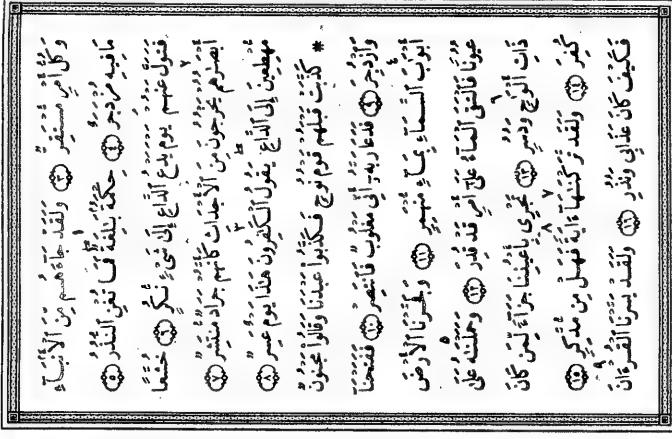 وَكُلُّ أَمْرٍ مُّسْتَقِرٌّ ٣ وَلَقَدْ جَآءَهُم مِّنَ ٱلْأَنۢبَآءِ
مَا فِيهِ مُزْدَجَرٌ ٤ حِكْمَةٌۢ بَٰلِغَةٌ فَمَا تُغْنِ ٱلنُّذُرُ ٥
فَتَوَلَّ عَنْهُمْ يَوْمَ يَدْعُ ٱلدَّاعِ إِلَىٰ شَىْءٍ نُّكُرٍ ٦ خُشَّعًا
أَبْصَٰرُهُمْ يَخْرُجُونَ مِنَ ٱلْأَجْدَاثِ كَأَنَّهُمْ جَرَادٌ مُّنتَشِرٌ ٧
مُّهْطِعِينَ إِلَى ٱلدَّاعِ يَقُولُ ٱلْكَٰفِرُونَ هَٰذَا يَوْمٌ عَسِرٌ ٨
* كَذَّبَتْ قَبْلَهُمْ قَوْمُ نُوحٍ فَكَذَّبُوا۟ عَبْدَنَا وَقَالُوا۟ مَجْنُونٌ
وَٱزْدُجِرَ ٩ فَدَعَا رَبَّهُۥٓ أَنِّى مَغْلُوبٌ فَٱنتَصِرْ ١٠ فَفَتَحْنَآ
أَبْوَٰبَ ٱلسَّمَآءِ بِمَآءٍ مُّنْهَمِرٍ ١١ وَفَجَّرْنَا ٱلْأَرْضَ
عُيُونًا فَٱلْتَقَى ٱلْمَآءُ عَلَىٰٓ أَمْرٍ قَدْ قُدِرَ ١٢ وَحَمَلْنَٰهُ عَلَىٰ
ذَاتِ أَلْوَٰحٍ وَدُسُرٍ ١٣ تَجْرِى بِأَعْيُنِنَا جَزَآءً لِّمَن كَانَ
كُفِرَ ١٤ وَلَقَد تَّرَكْنَٰهَآ ءَايَةً فَهَلْ مِن مُّدَّكِرٍ ١٥
فَكَيْفَ كَانَ عَذَابِى وَنُذُرِ ١٦ وَلَقَدْ يَسَّرْنَا ٱلْقُرْءَانَ